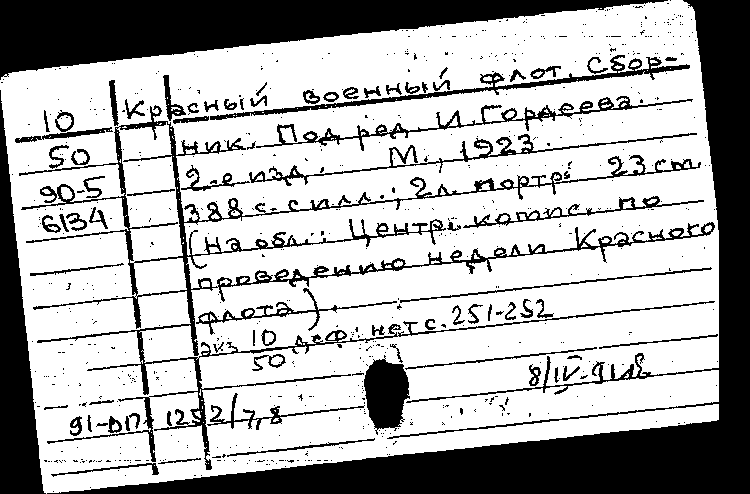 10 Красный военный флот. Сбор-
50 ник. Под ред. И. Гордеева.
90-5 2-е изд. М., 1923.
6134 388 с. с илл.; 2 л. портр. 23 см.
(На обл.: Центр. комис. по
проведению недели Красного
флота).
экз. 10/50 деф.: нет с. 251-252
8/IV-91
91-ДП 1252/7,8